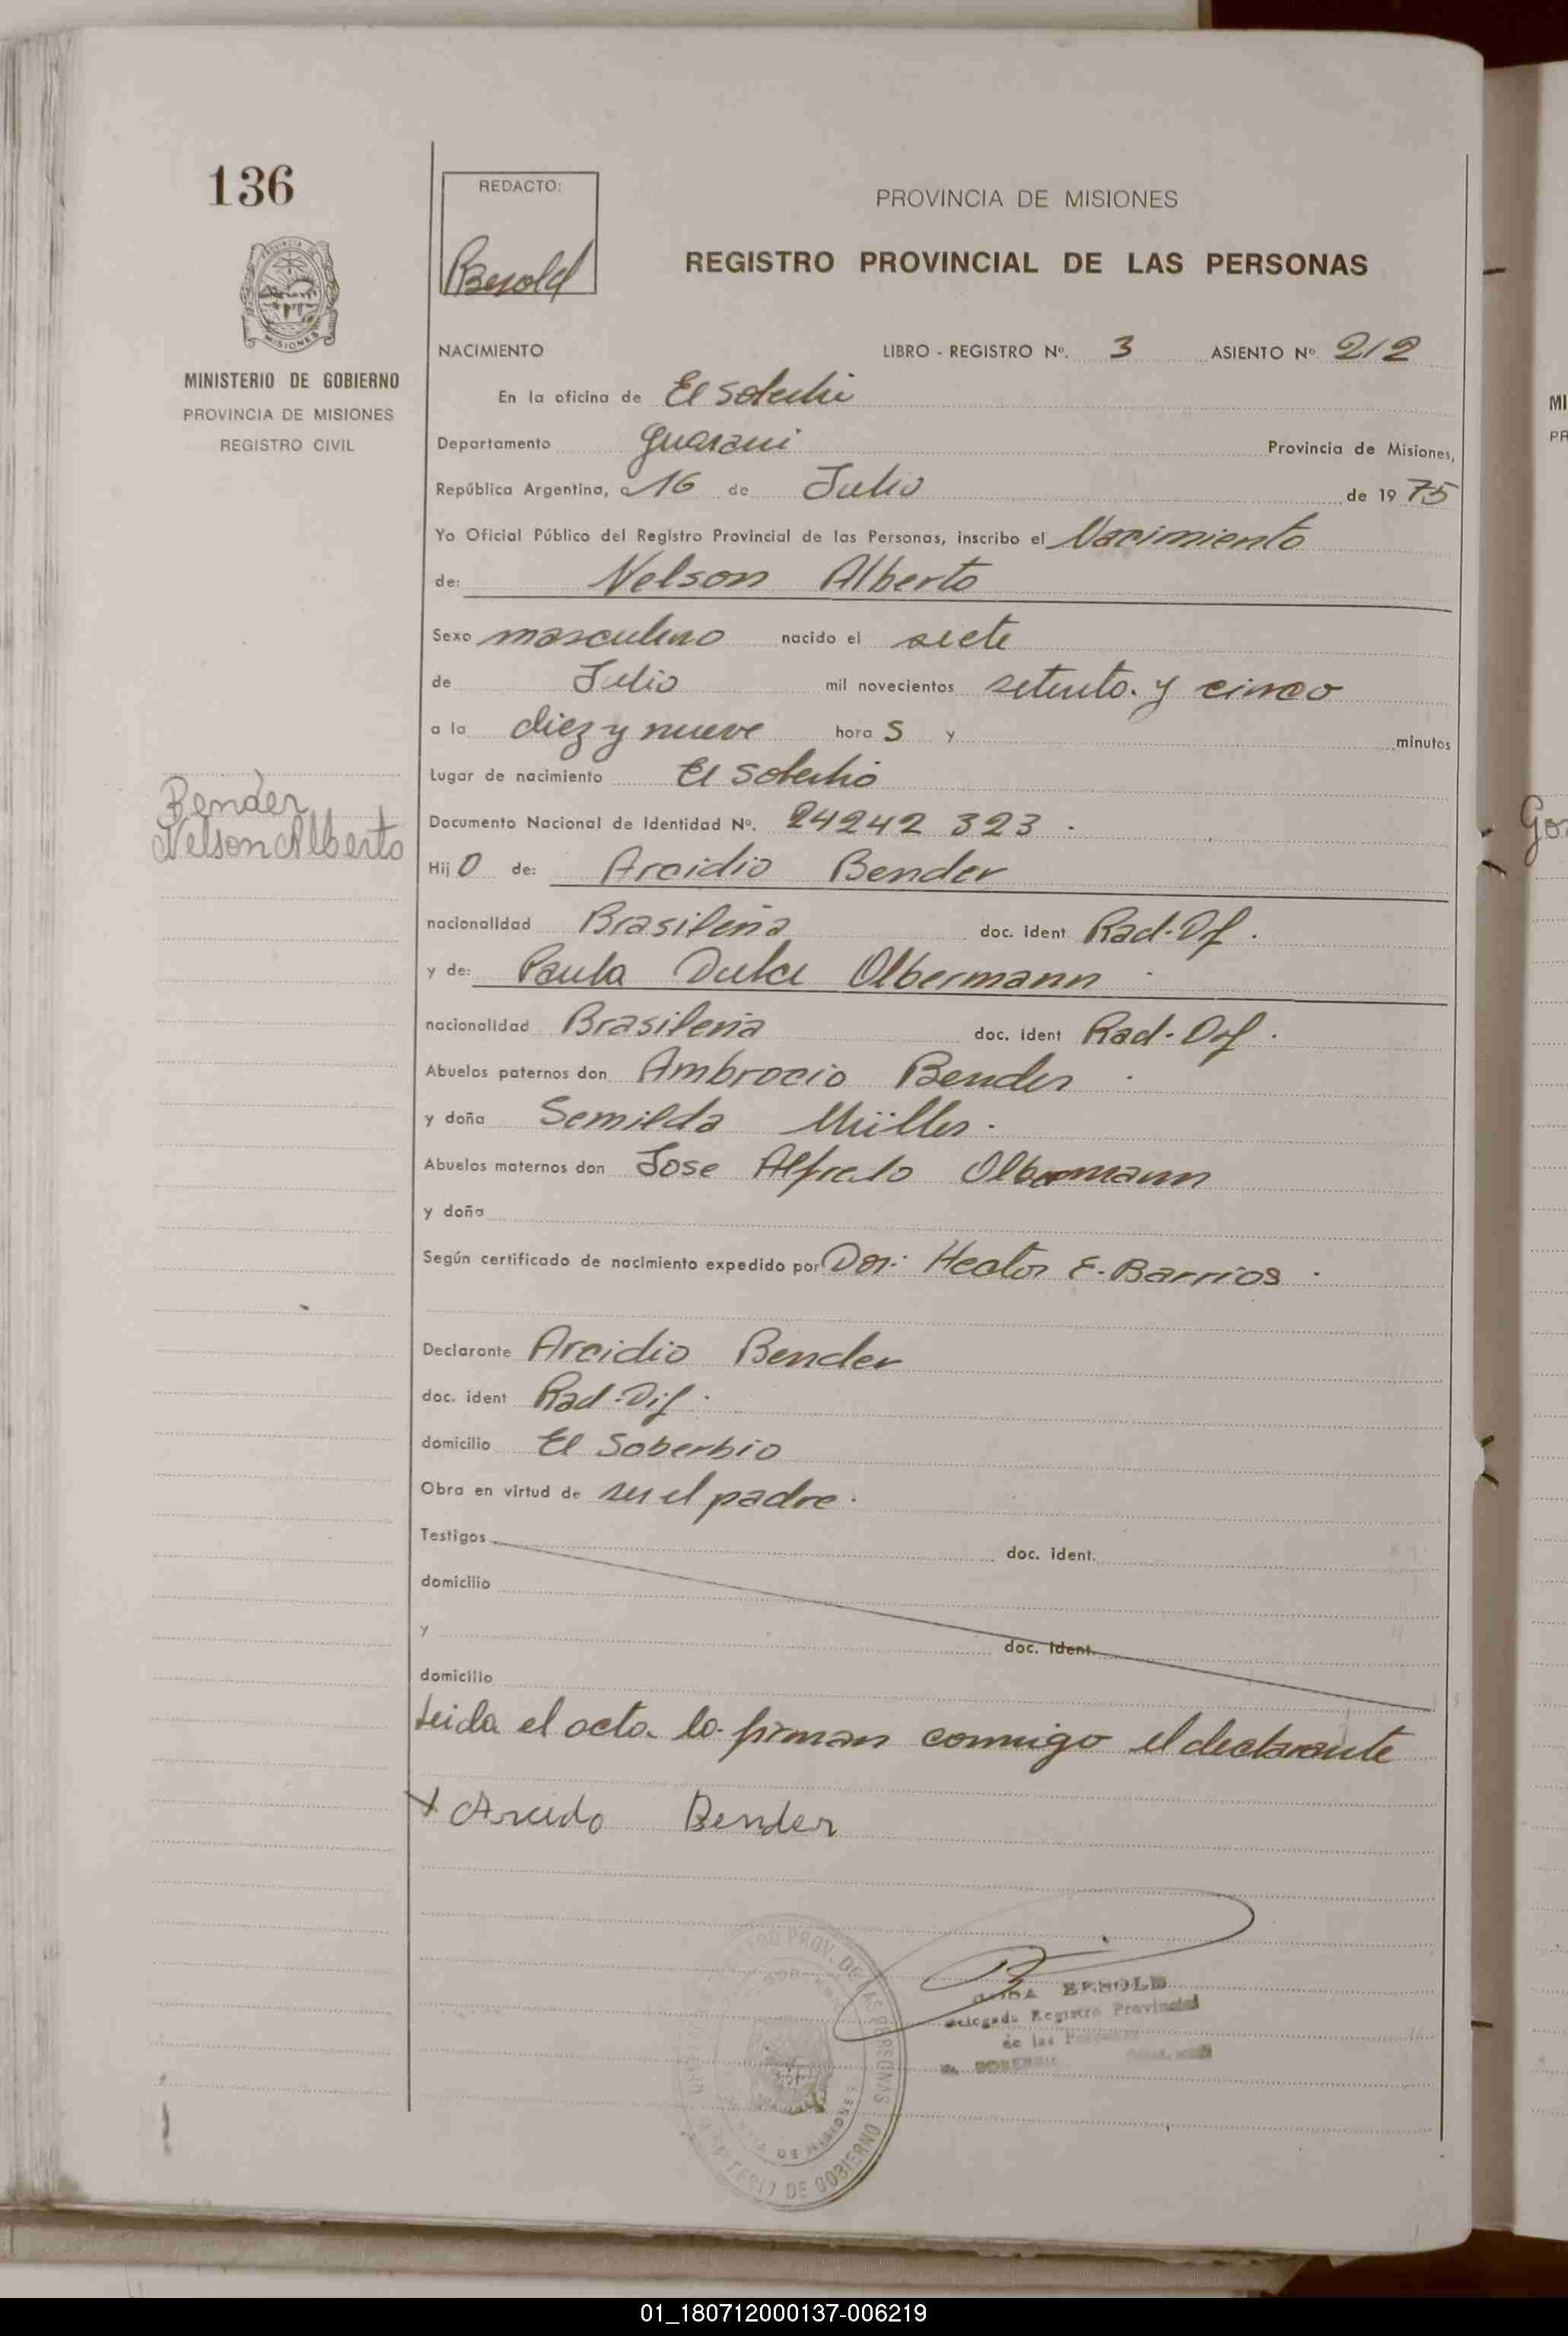 136
REDACTO:
Besold
PROVINCIA DE MISIONES
REGISTRO PROVINCIAL DE LAS PERSONAS
MISIONES
MINISTERIO DE GOBIERNO
PROVINCIA DE MISIONES
REGISTRO CIVIL
NACIMIENTO LIBRO - REGISTRO Nº. 3 ASIENTO Nº 212
En la oficina de El Soberbio
Departamento Guarani Provincia de Misiones,
República Argentina, a 16 de Julio de 1975
Yo Oficial Público del Registro Provincial de las Personas, inscribo el Nacimiento
de: Nelson Alberto
Sexo masculino nacido el siete
de Julio mil novecientos setenta y cinco
a la diez y nueve hora s y minutos
Lugar de nacimiento El Soberbio
Bender
Nelson Alberto
Documento Nacional de Identidad Nº. 24242 323 .
Hij o de: Arcidio Bender
nacionalidad Brasileña doc. ident Rad-Dif.
y de: Paula Dulce Olbermann
nacionalidad Brasileña doc. ident Rad-Dif.
Abuelos paternos don Ambrocio Bender
y doña Semilda Müller.
Abuelos maternos don Jose Alfredo Olbermann
y doña
Según certificado de nacimiento expedido por Dor: Hector E. Barrios .
Declarante Arcidio Bender
doc. ident Rad-Dif.
domicilio El Soberbio
Obra en virtud de ser el padre.
Testigos doc. ident.
domicilio
y doc. ident.
domicilio
Leida el acta la firman conmigo el declarante
x Arcido Bender
BESOLD
Delegada Registro Provincial
de las
PROV. DE LAS PERSONAS
DE MISIONES
DE GOBIERNO
MI
PR
Go
01_180712000137-006219